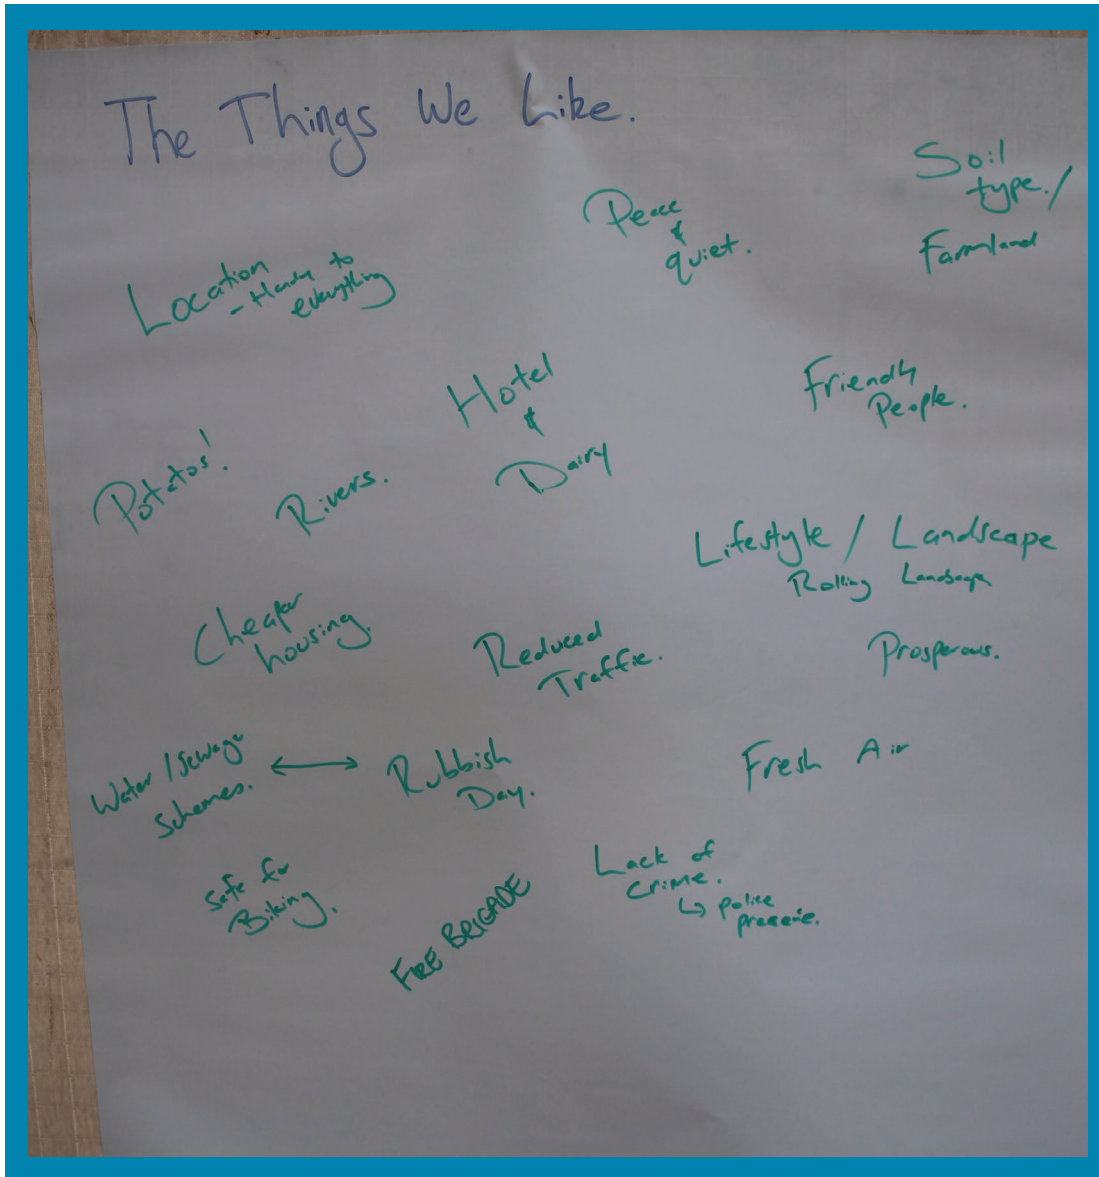 The Things We Like.
Soil
type./
Farmland
Peace
&
quiet.
Location
- Handy to
everything
Hotel
&
Dairy
Friendly
People.
Potatos!
Rivers.
Lifestyle / Landscape
Rolling Landscape
Cheaper
housing.
Reduced
Traffic.
Prosperous.
Water / Sewage
Schemes.
Rubbish
Day.
Fresh Air
Safe for
Biking.
FIRE BRIGADE
Lack of
crime.
↳ police
presence.